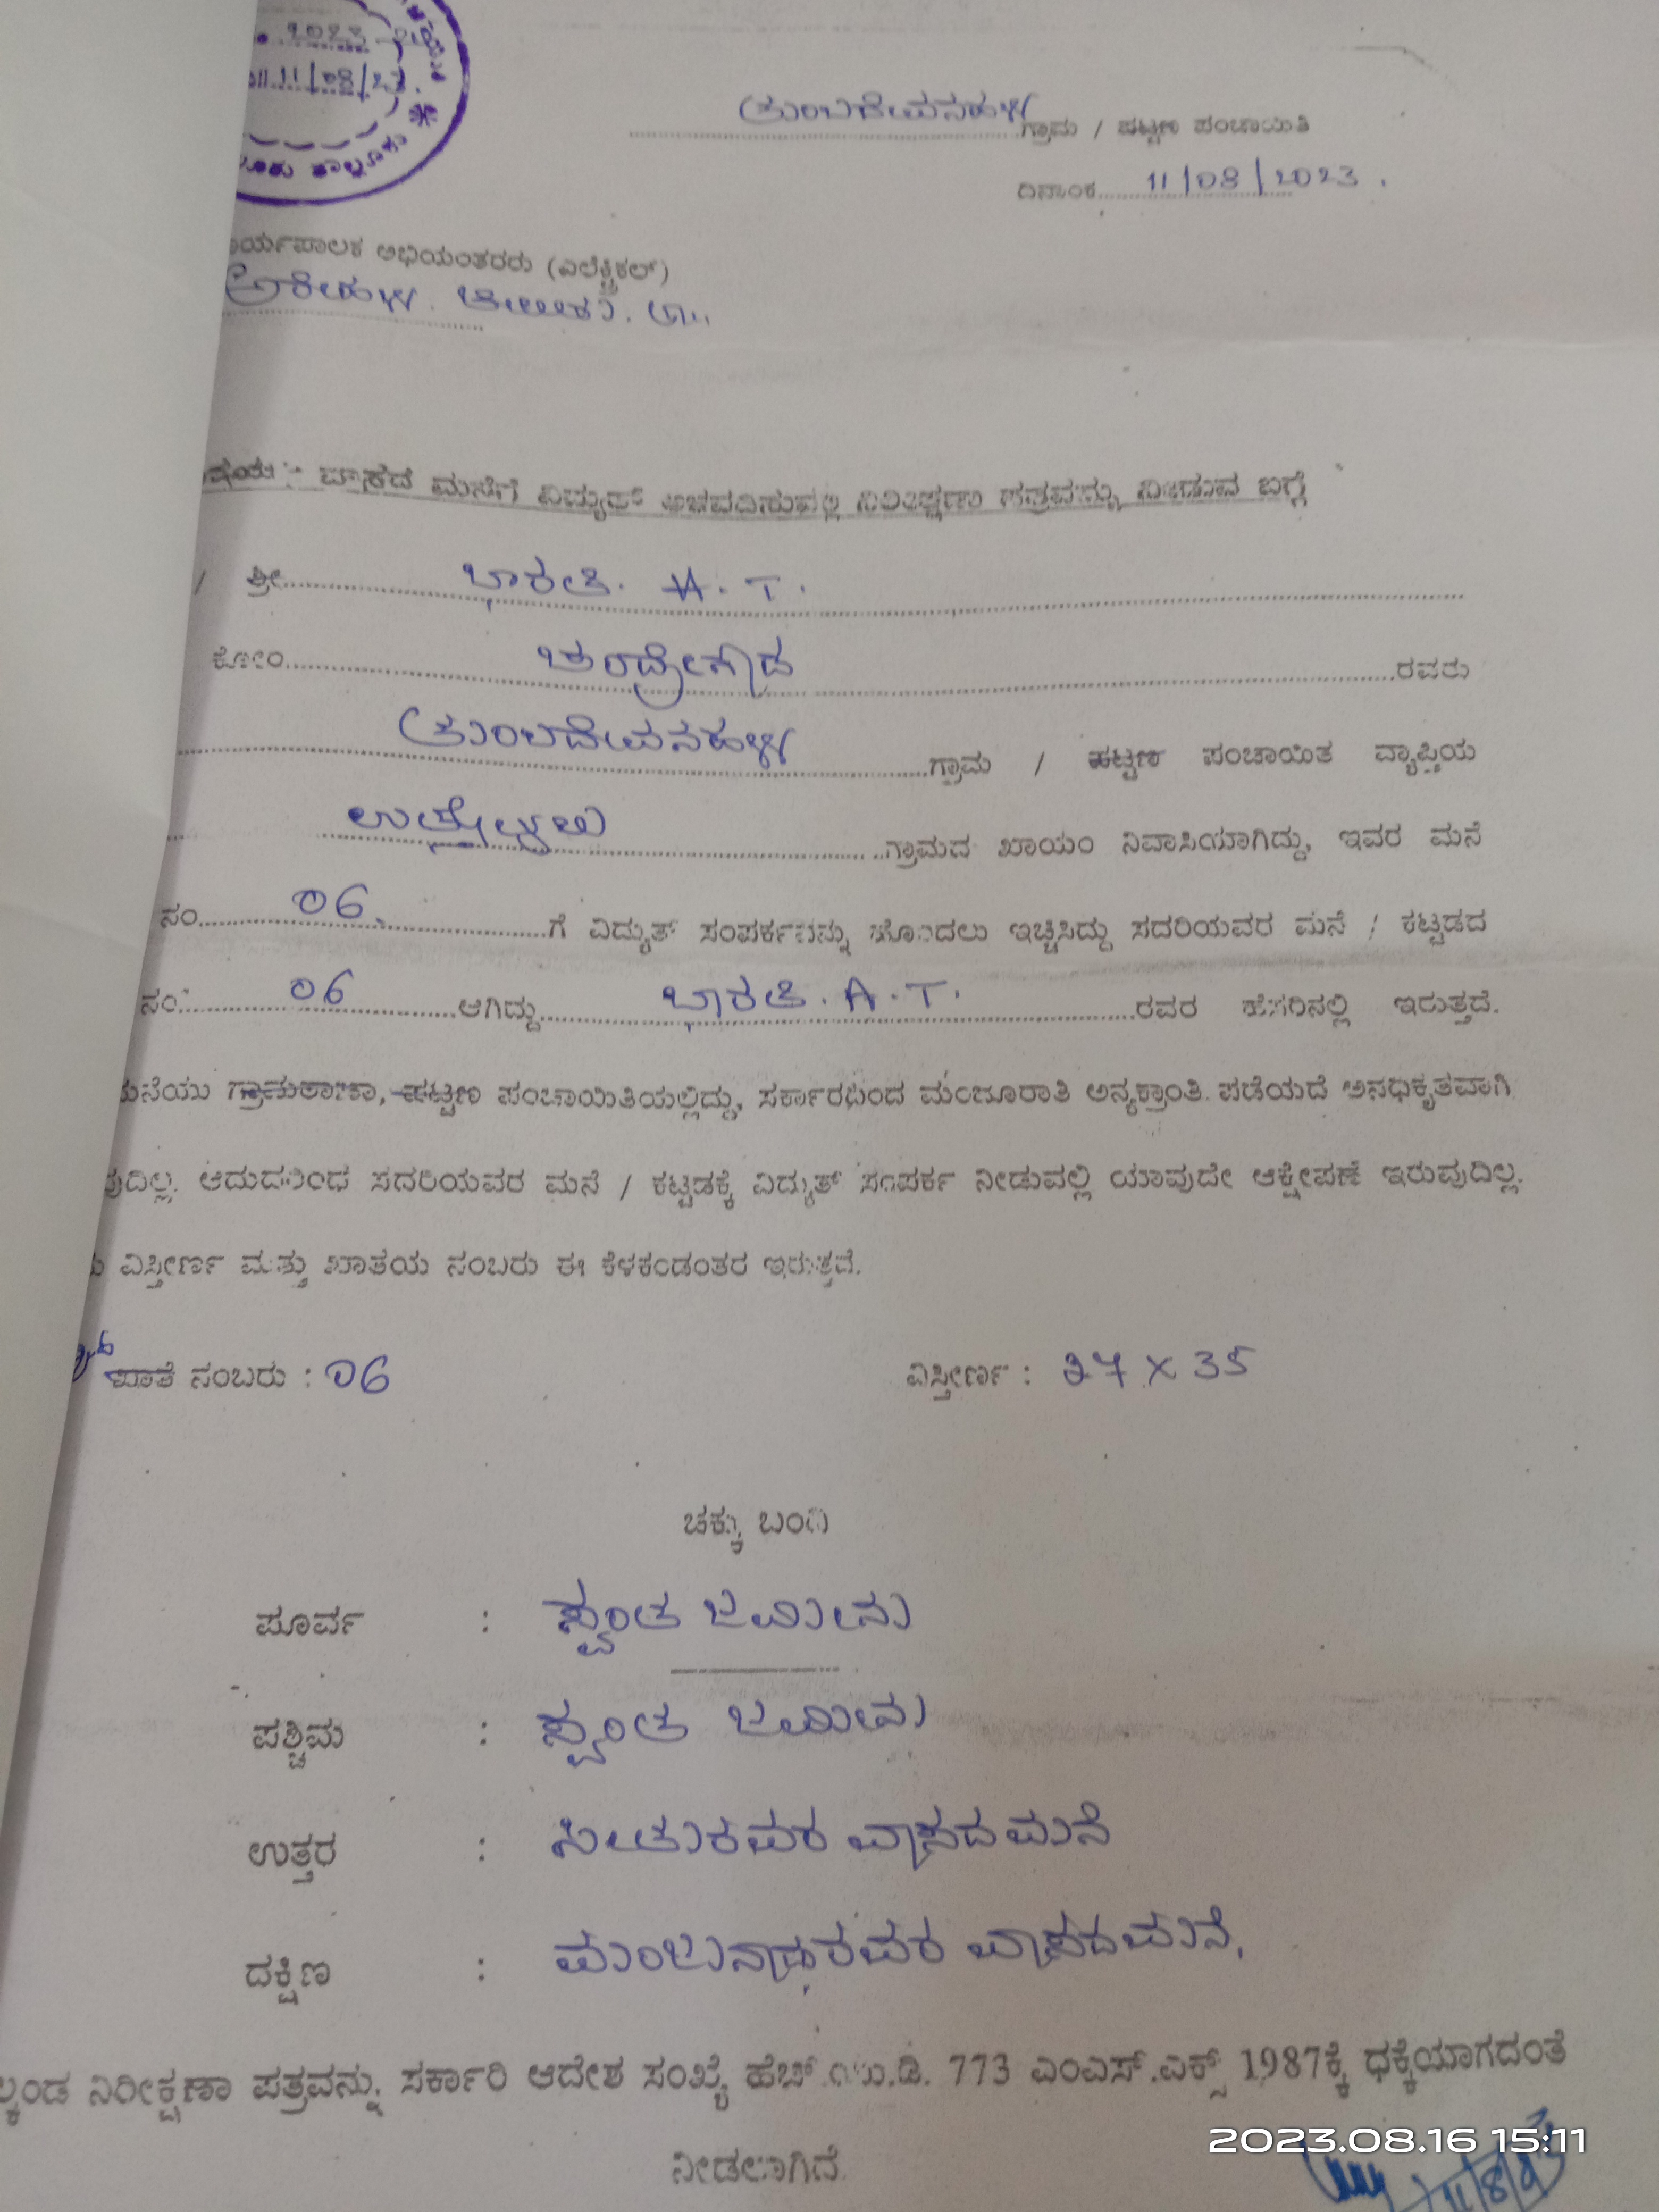 2023
11/08/23.
ತುಂಬದೇವನಹಳ್ಳಿ ಗ್ರಾಮ / ಪಟ್ಟಣ ಪಂಚಾಯಿತಿ
ದಿನಾಂಕ 11/08/2023.
ಅಭಿಯಂತರರು (ಎಲೆಕ್ಟ್ರಿಕಲ್)
ಅರೇಹಳ್ಳಿ.
ವಾಸದ ಮನೆಗೆ ವಿದ್ಯುತ್ ನಿರೀಕ್ಷಣಾ ಪತ್ರವನ್ನು ನೀಡುವ ಬಗ್ಗೆ
/ ಶ್ರೀ ಭಾರತಿ. H. T.
ಕೋಂ ಚಂದ್ರೇಗೌಡ ರವರು
ತುಂಬದೇವನಹಳ್ಳಿ ಗ್ರಾಮ / ಪಟ್ಟಣ ಪಂಚಾಯಿತ ವ್ಯಾಪ್ತಿಯ
ಗ್ರಾಮದ ಖಾಯಂ ನಿವಾಸಿಯಾಗಿದ್ದು, ಇವರ ಮನೆ
ನಂ 06. ಗೆ ವಿದ್ಯುತ್ ಸಂಪರ್ಕವನ್ನು ಹೊಂದಲು ಇಚ್ಚಿಸಿದ್ದು ಸದರಿಯವರ ಮನೆ / ಕಟ್ಟಡದ
ನಂ: 06 ಆಗಿದ್ದು ಭಾರತಿ. A. T. ರವರ ಹೆಸರಿನಲ್ಲಿ ಇರುತ್ತದೆ.
ಮನೆಯು ಗ್ರಾಮಠಾಣಾ, ಪಟ್ಟಣ ಪಂಚಾಯಿತಿಯಲ್ಲಿದ್ದು, ಸರ್ಕಾರದಿಂದ ಮಂಜೂರಾತಿ ಅನ್ಯಕ್ರಾಂತಿ ಪಡೆಯದೆ ಅನಧಿಕೃತವಾಗಿ
ಆದುದರಿಂದ ಸದರಿಯವರ ಮನೆ / ಕಟ್ಟಡಕ್ಕೆ ವಿದ್ಯುತ್ ಸಂಪರ್ಕ ನೀಡುವಲ್ಲಿ ಯಾವುದೇ ಆಕ್ಷೇಪಣೆ ಇರುವುದಿಲ್ಲ.
ವಿಸ್ತೀರ್ಣ ಮತ್ತು ಖಾತೆಯ ನಂಬರು ಈ ಕೆಳಕಂಡಂತರ ಇರುತ್ತದೆ.
ಖಾತೆ ನಂಬರು : 06 ವಿಸ್ತೀರ್ಣ : 27 X 35
ಚಕ್ಕು ಬಂದಿ
ಪೂರ್ವ : ಸ್ವಂತ ಜಮೀನು
ಪಶ್ಚಿಮ : ಸ್ವಂತ ಜಮೀನು
ಉತ್ತರ : ವಾಸದ ಮನೆ
ದಕ್ಷಿಣ : ಮಂಜುನಾಥರವರ ವಾಸದ ಮನೆ,
ನಿರೀಕ್ಷಣಾ ಪತ್ರವನ್ನು ಸರ್ಕಾರಿ ಆದೇಶ ಸಂಖ್ಯೆ ಹೆಚ್.ಯು.ಡಿ. 773 ಎಂಎಸ್.ಎಕ್ಸ್ 1987ಕ್ಕೆ ಧಕ್ಕೆಯಾಗದಂತೆ
ನೀಡಲಾಗಿದೆ
2023.08.16 15:11